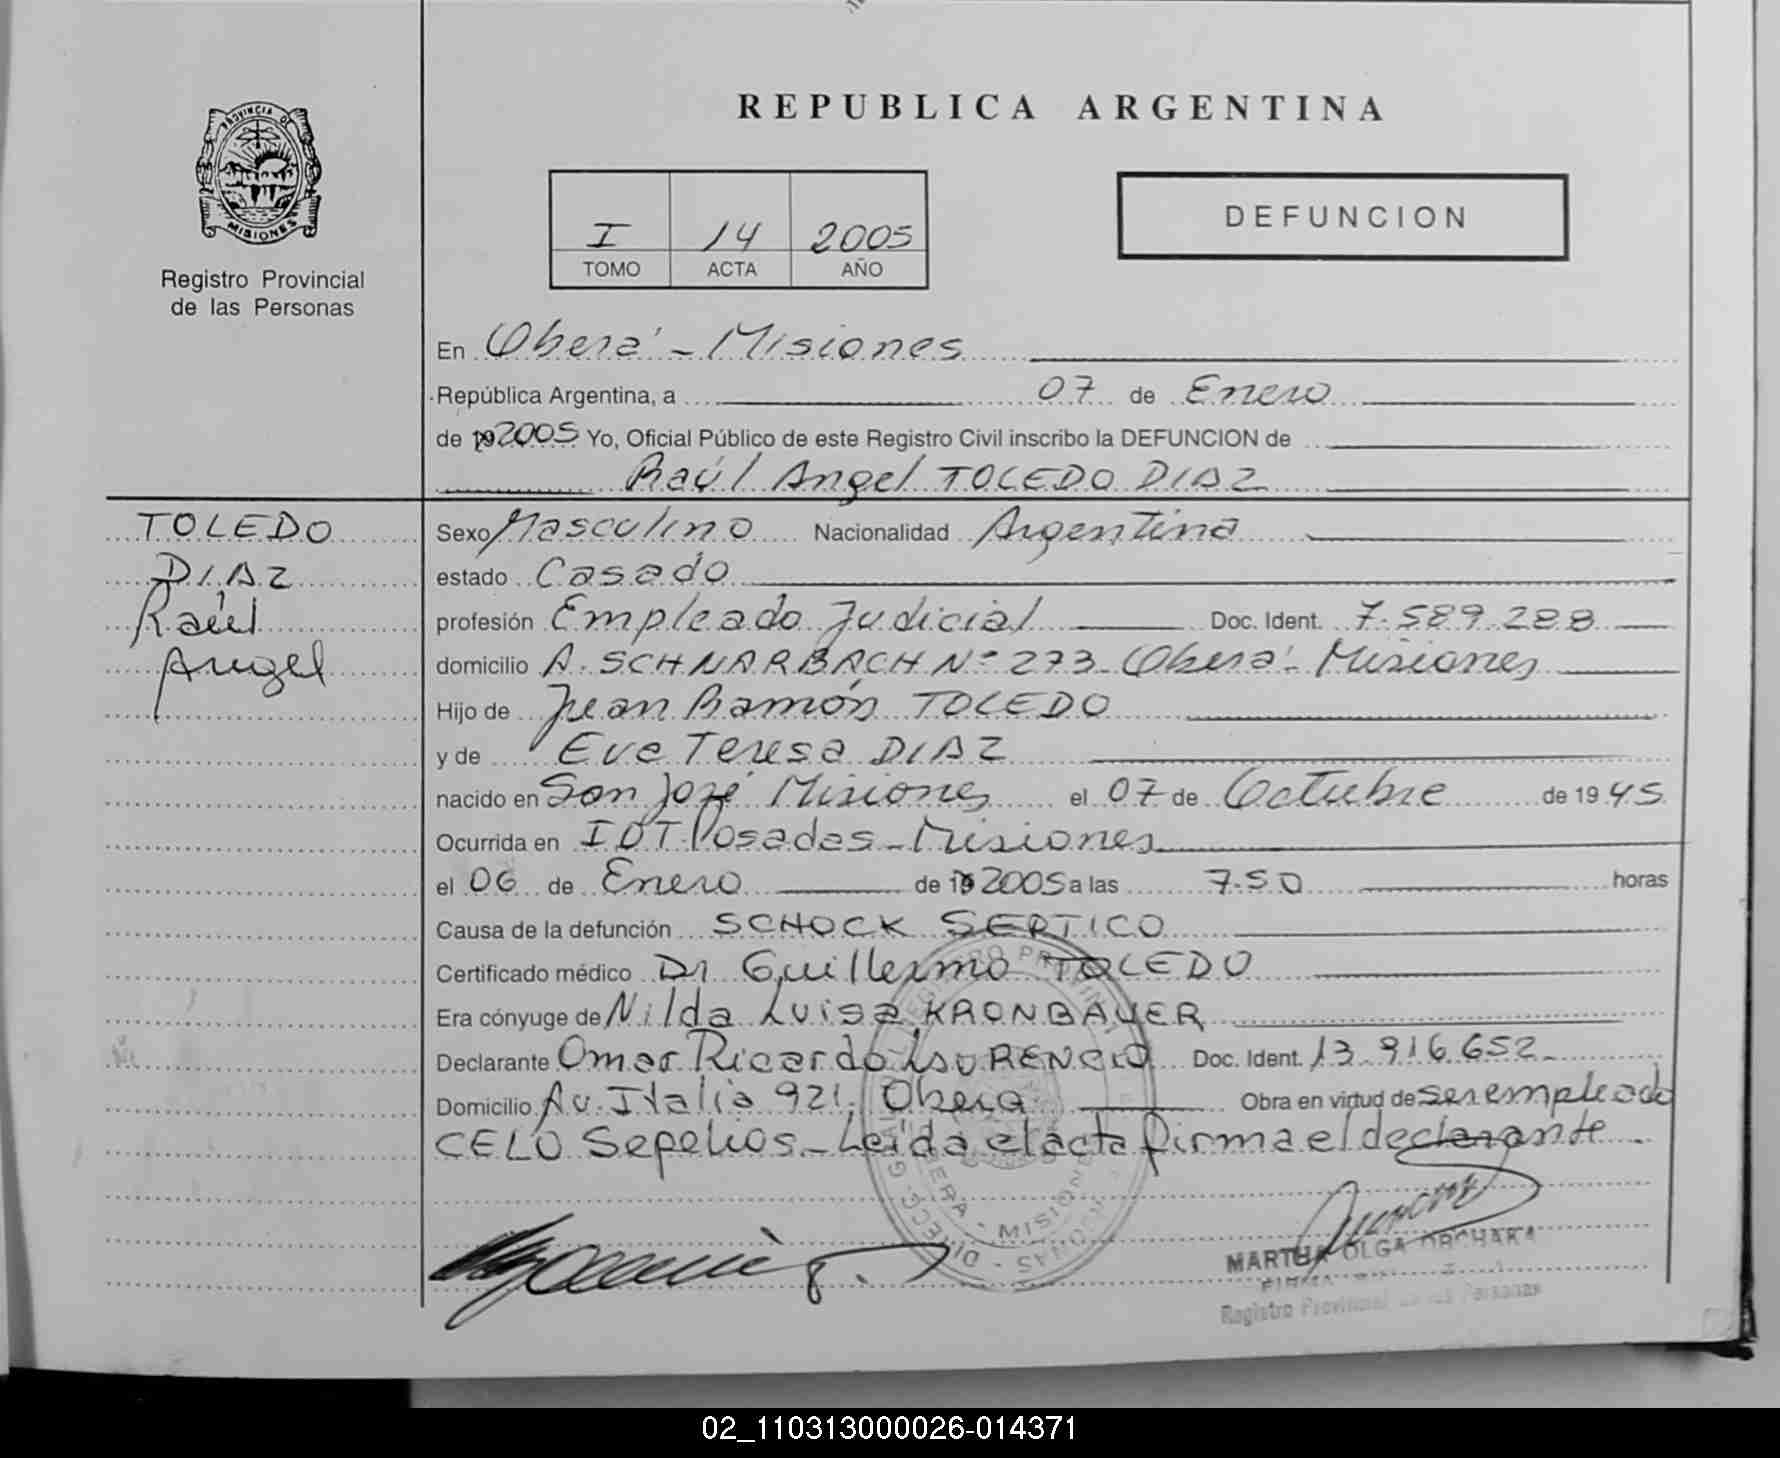 REPUBLICA ARGENTINA
PROVINCIA DE
MISIONES
Registro Provincial
de las Personas
I 14 2005
TOMO ACTA AÑO
DEFUNCION
En Oberá - Misiones
República Argentina, a 07 de Enero
de 19 2005 Yo, Oficial Público de este Registro Civil inscribo la DEFUNCION de
Raúl Angel TOLEDO DIAZ
TOLEDO
DIAZ
Raúl
Angel
Sexo Masculino Nacionalidad Argentina
estado Casado
profesión Empleado Judicial Doc. Ident. 7.589.288
domicilio A. SCHNARBACH Nº 273 - Oberá - Misiones
Hijo de Juan Ramón TOLEDO
y de Eve Teresa DIAZ
nacido en San José Misiones el 07 de Octubre de 1945
Ocurrida en IOT. Posadas - Misiones
el 06 de Enero de 19 2005 a las 7.50 horas
Causa de la defunción SCHOCK SEPTICO
Certificado médico Dr. Guillermo TOLEDO
Era cónyuge de Nilda Luisa KRONBAUER
Declarante Omar Ricardo LAURENCIO Doc. Ident. 13.916.652
Domicilio Av. Italia 921, Obera Obra en virtud de ser empleado
CELO Sepelios - Leída el acta firma el declarante
MISIONES
MARTHA OLGA ORCHAKA
Registro Provincial de las Personas
02_110313000026-014371